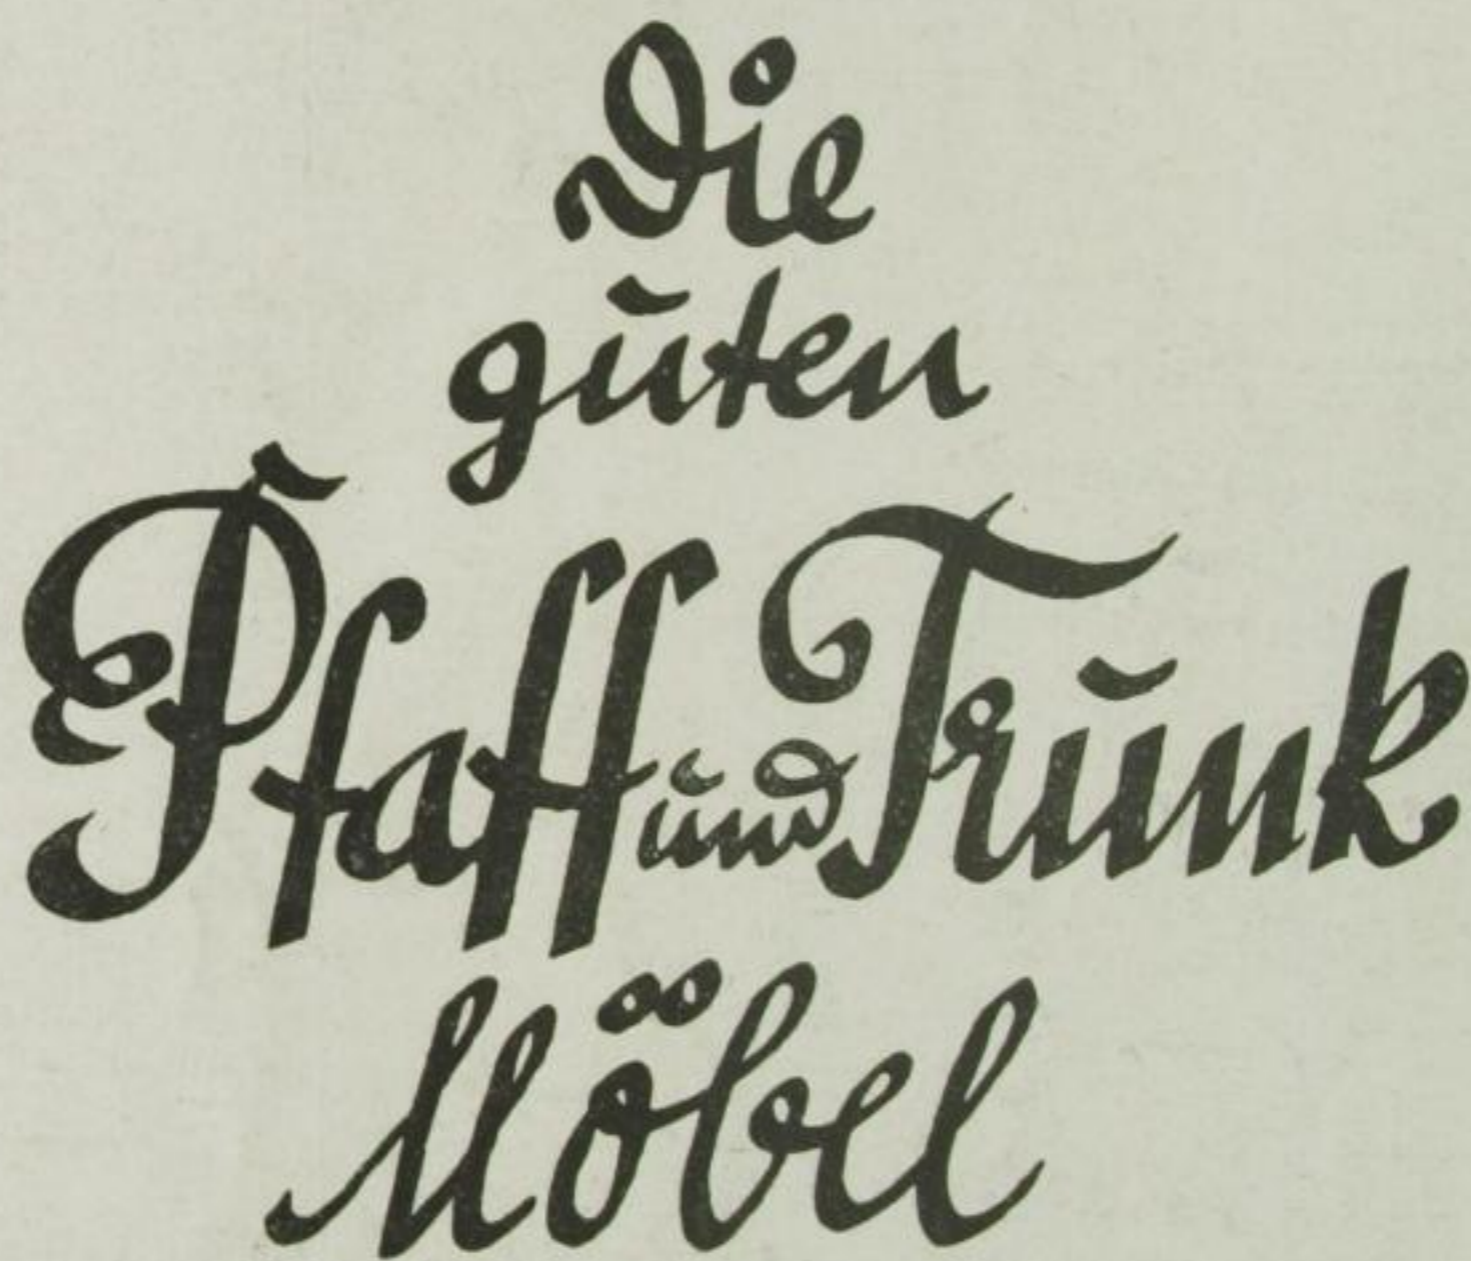 Die
guten
Pfaff und Trunk
Möbel